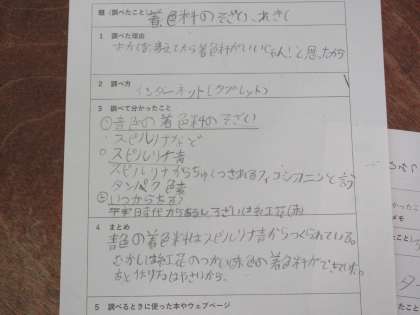 題(調べたこと) 着色料のそざい、れきし
1 調べた理由
ほかを考えてたら着色料がいいじゃん!と思ったから
2 調べ方
インターネット(タブレット)
3 調べて分かったこと
①青色の着色料のそざい
・スピルリナなど
○スピルリナ青
スピルリナからちゅうつされるフィコシアニンと言う
タンパク色素
②いつからある?
平安時代からあるしそざいは紅花
4 まとめ
青色の着色料はスピルリナ青からつくられている。
むかしは紅花の 色の着色料ができていた。
あと作り方はやさいから。
5 調べるときに使った本やウェブページ
メモ